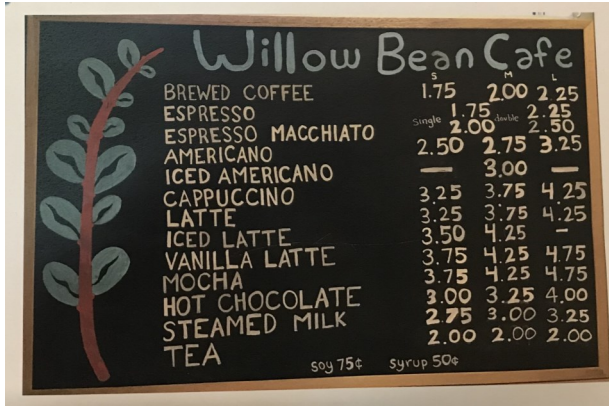 Willow Bean Cafe
S M L
BREWED COFFEE 1.75 2.00 2.25
ESPRESSO single 1.75 double 2.25
ESPRESSO MACCHIATO 2.00 2.50
AMERICANO 2.50 2.75 3.25
ICED AMERICANO — 3.00 —
CAPPUCCINO 3.25 3.75 4.25
LATTE 3.25 3.75 4.25
ICED LATTE 3.50 4.25 —
VANILLA LATTE 3.75 4.25 4.75
MOCHA 3.75 4.25 4.75
HOT CHOCOLATE 3.00 3.25 4.00
STEAMED MILK 2.75 3.00 3.25
TEA 2.00 2.00 2.00
soy 75¢ syrup 50¢